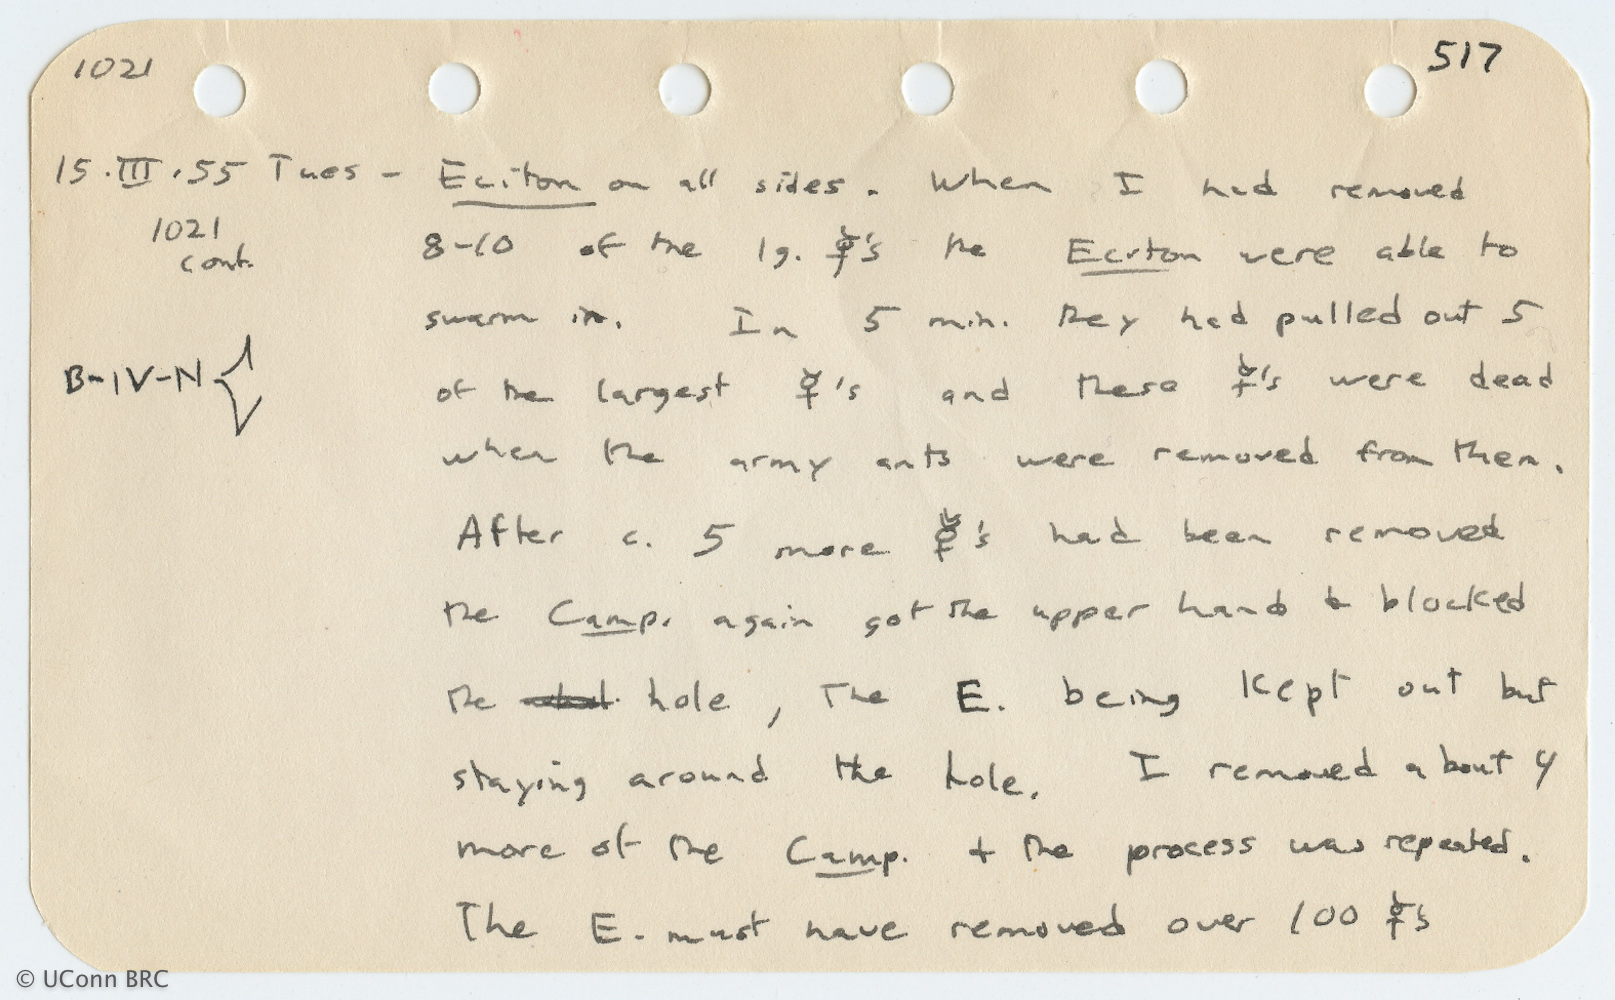 1021
517
15.III.55 Tues - Eciton on all sides. When I had removed
1021
cont.
8-10 of the lg. ☿'s the Eciton were able to
swarm in. In 5 min. they had pulled out 5
B-IV-N
of the largest ☿'s and these ☿'s were dead
when the army ants were removed from them.
After c. 5 more ☿'s had been removed
the Camp. again got the upper hand & blocked
the hole, The E. being kept out but
staying around the hole. I removed about 4
more of the Camp. + the process was repeated.
The E. must have removed over 100 ☿'s
© UConn BRC